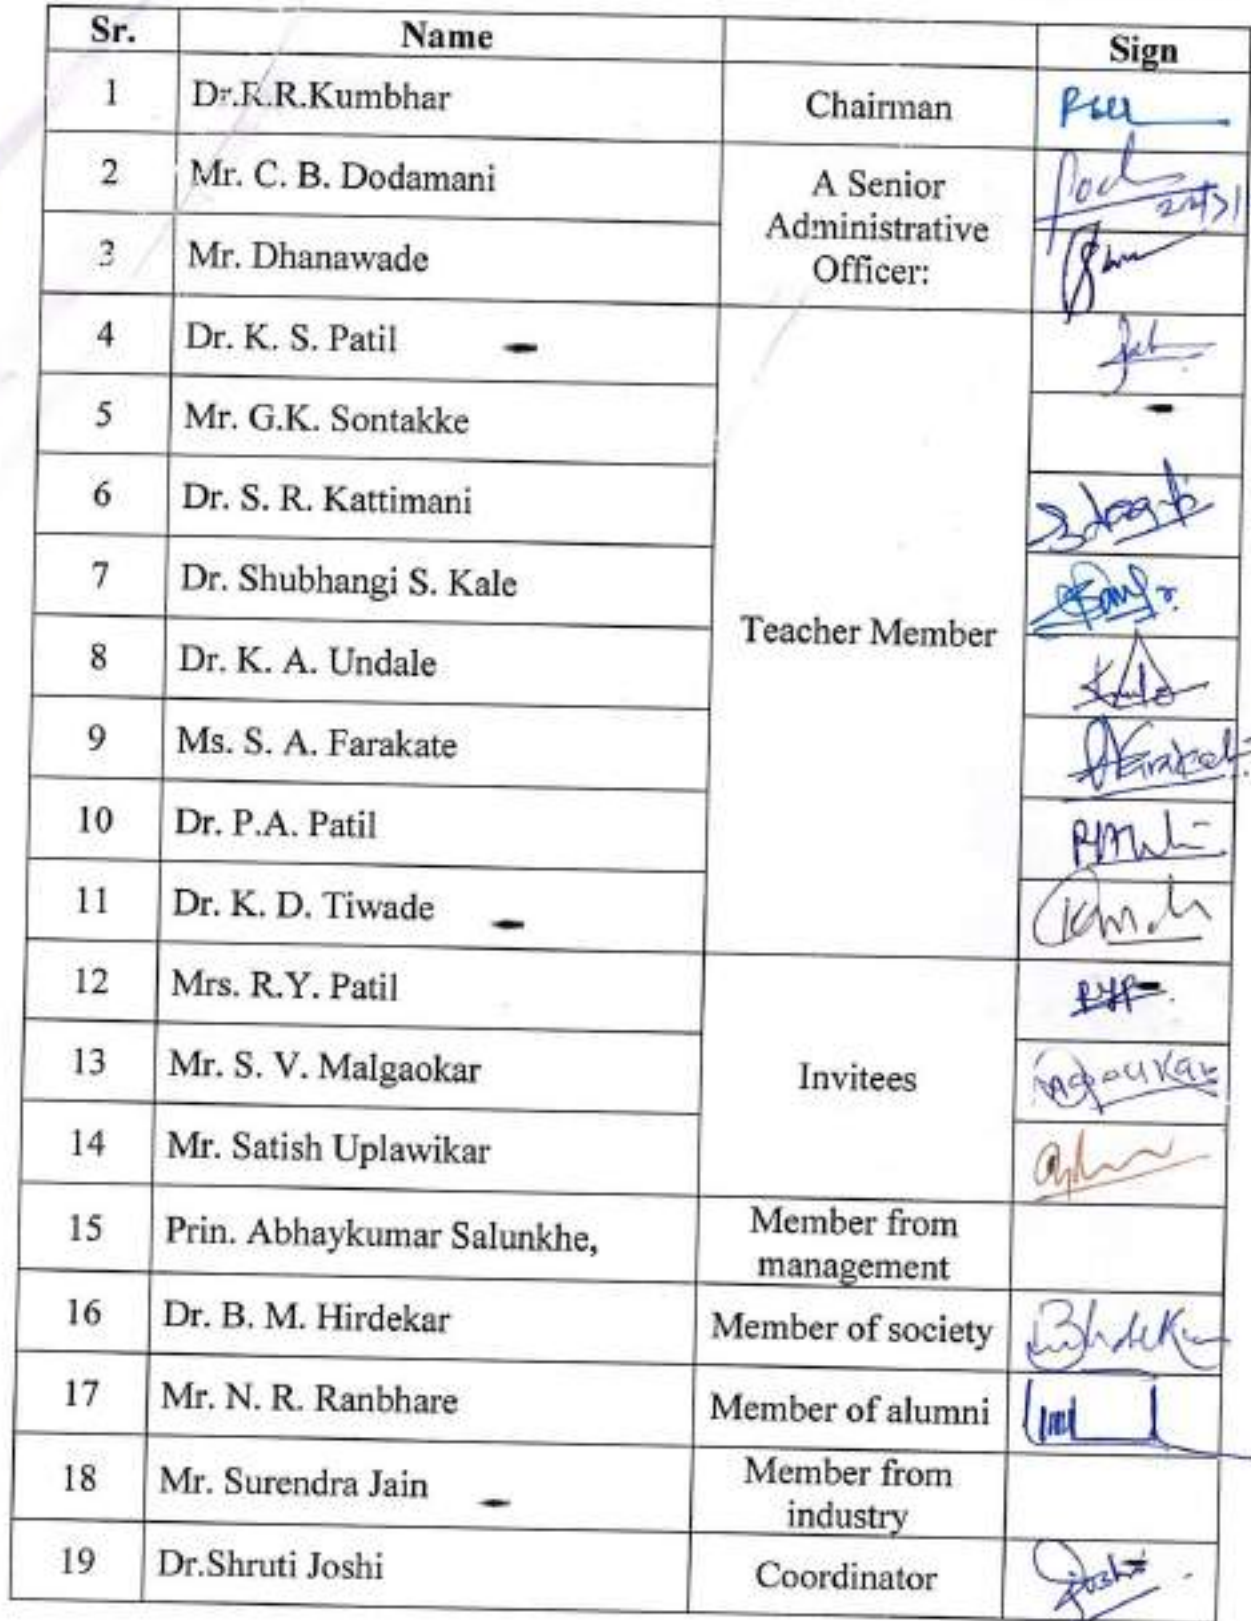 Sr. Name Sign
1 Dr.R.R.Kumbhar Chairman
2 Mr. C. B. Dodamani A Senior
Administrative
Officer:
3 Mr. Dhanawade
4 Dr. K. S. Patil
5 Mr. G.K. Sontakke
6 Dr. S. R. Kattimani
7 Dr. Shubhangi S. Kale
Teacher Member
8 Dr. K. A. Undale
9 Ms. S. A. Farakate
10 Dr. P.A. Patil
11 Dr. K. D. Tiwade
12 Mrs. R.Y. Patil
13 Mr. S. V. Malgaokar Invitees
14 Mr. Satish Uplawikar
15 Prin. Abhaykumar Salunkhe, Member from
management
16 Dr. B. M. Hirdekar Member of society
17 Mr. N. R. Ranbhare Member of alumni
18 Mr. Surendra Jain Member from
industry
19 Dr.Shruti Joshi Coordinator